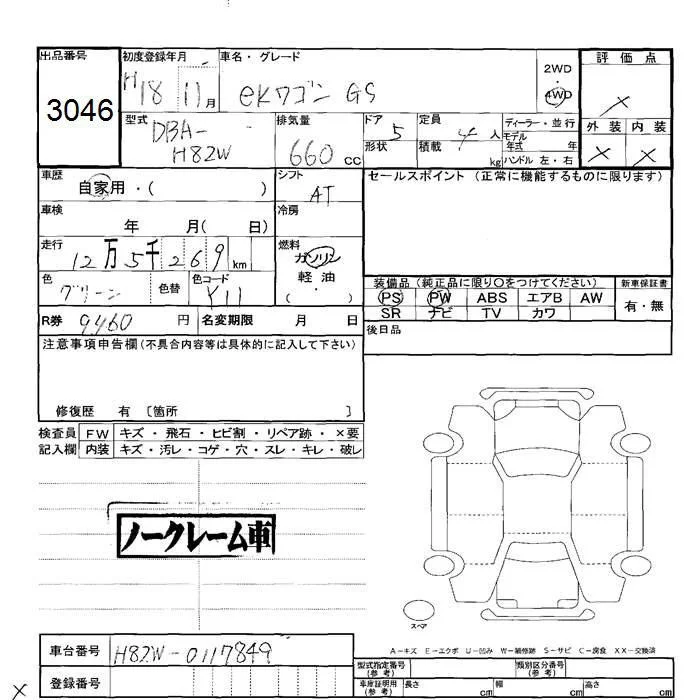 出品番号 初度登録年月 車名・グレード 評価点
3046 H18 11月 eKワゴン GS 2WD 4WD ×
型式 DBA-H82W 排気量 660cc ドア 5 形状 定員 4人 積載 kg ディーラー・並行 モデル年式 年 ハンドル 左・右 外装 内装 × ×
車歴 自家用・( ) シフト AT セールスポイント(正常に機能するものに限ります)
車検 年 月( 日) 冷房
走行 12万5千269km 燃料 ガソリン 軽・油 ( ・ )
色 グリーン 色替 色コード Y11 装備品(純正品に限り○をつけてください) 新車保証書
PS PW ABS エアB AW 有・無
SR ナビ TV カワ
R券 9460円 名変期限 月 日 後日品
注意事項申告欄(不具合内容等は具体的に記入して下さい)
修復歴 有 〔箇所 〕
検査員 FW キズ・飛石・ヒビ割・リペア跡・×要
記入欄 内装 キズ・汚レ・コゲ・穴・スレ・キレ・破レ
ノークレーム車
スペア
A-キズ E-エクボ U-凹み W-補修跡 S-サビ C-腐食 XX-交換済
車台番号 H82W-0117849 型式指定番号(参考) 類別区分番号(参考)
× 登録番号 車庫証明用(参考) 長さ cm 幅 cm 高さ cm